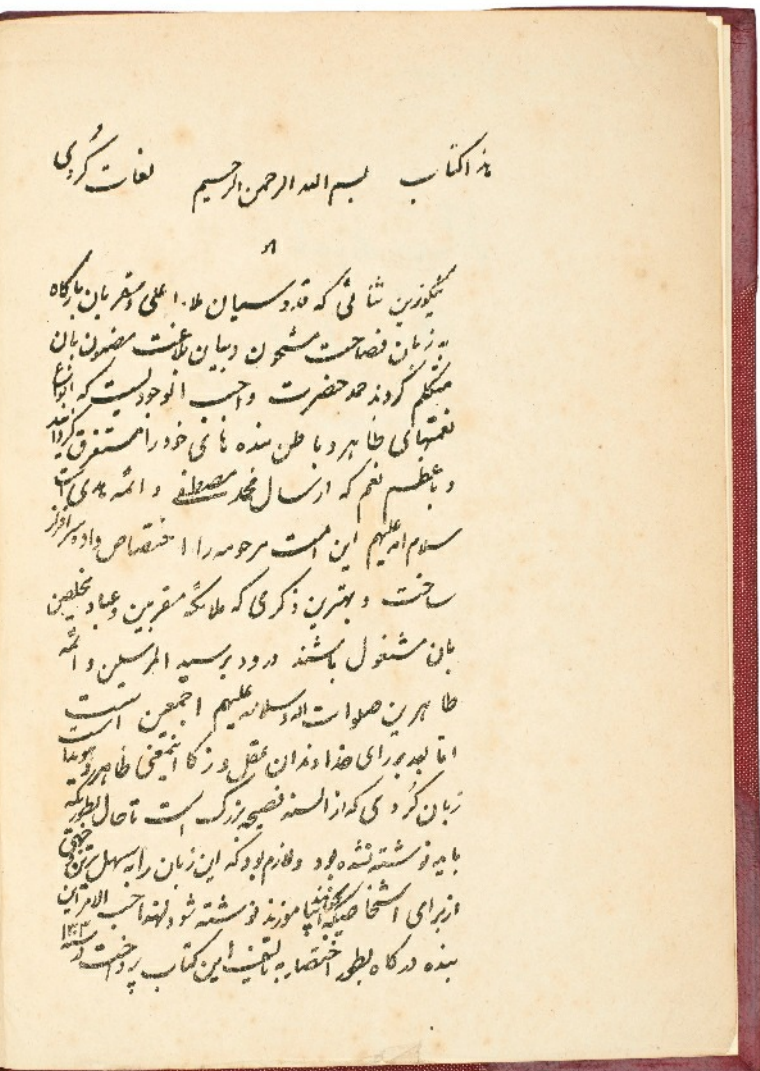 هذا کتاب بسم الله الرحمن الرحیم لغات کُردی
نیکوترین ثنائی که قدوسیان ملاء اعلی و مقربان بارگاه
به زبان فصاحت مشحون و بیان بلاغت مضمون بان
متکلم گردند حمد حضرت واجب الوجودیست که انواع
نعمتهای ظاهر و باطن بنده فانی خود را مستغرق گردانید
و باعظم نعم که ارسال محمد مصطفی و ائمه هدی است
سلام الله علیهم این امت مرحومه را اختصاص داده سرافراز
ساخت و بهترین ذکری که ملائکه مقربین و عباد مخلصین
بان مشغول باشند درود بر سید المرسلین و ائمه
طاهرین صلوات الله و سلامه علیهم اجمعین است
اما بعد برای خداوندان عقل و ذکا اینمعنی ظاهر و هویدا
زبان کُردی که از السنه فصیحه بزرگ است تا حال بطوریکه
باید نوشته نشده بود و لازم بود که این زبان را به سهل ترین
از برای اشخاصیکه بیاموزند نوشته شود لهذا حسب الامر این
بنده درگاه بطور اختصار به تالیف این کتاب پرداخت در سنه